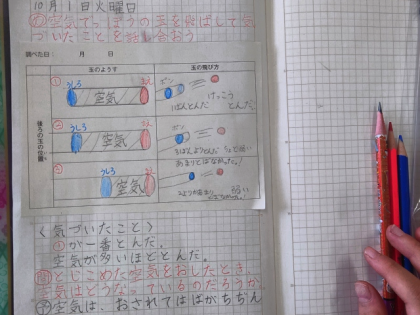 10月11日火曜日
め空気でっぽうの玉を飛ばして気
づいたことを話し合おう
調べた日： 月 日
玉のようす
玉の飛び方
後ろの玉の位置
①
うしろ
まえ
空気
ポン
いちばんとんだ
けっこう
とんだ。
②
うしろ
まえ
空気
ポン
③
うしろ
まえ
空気
あまりとばなかった。
弱い
〈気づいたこと〉
①が一番とんだ。
空気が多いほどとんだ。
問とじこめた空気をおしたとき、
空気はどうなっているのだろうか
予空気は、おされてはばがちぢん